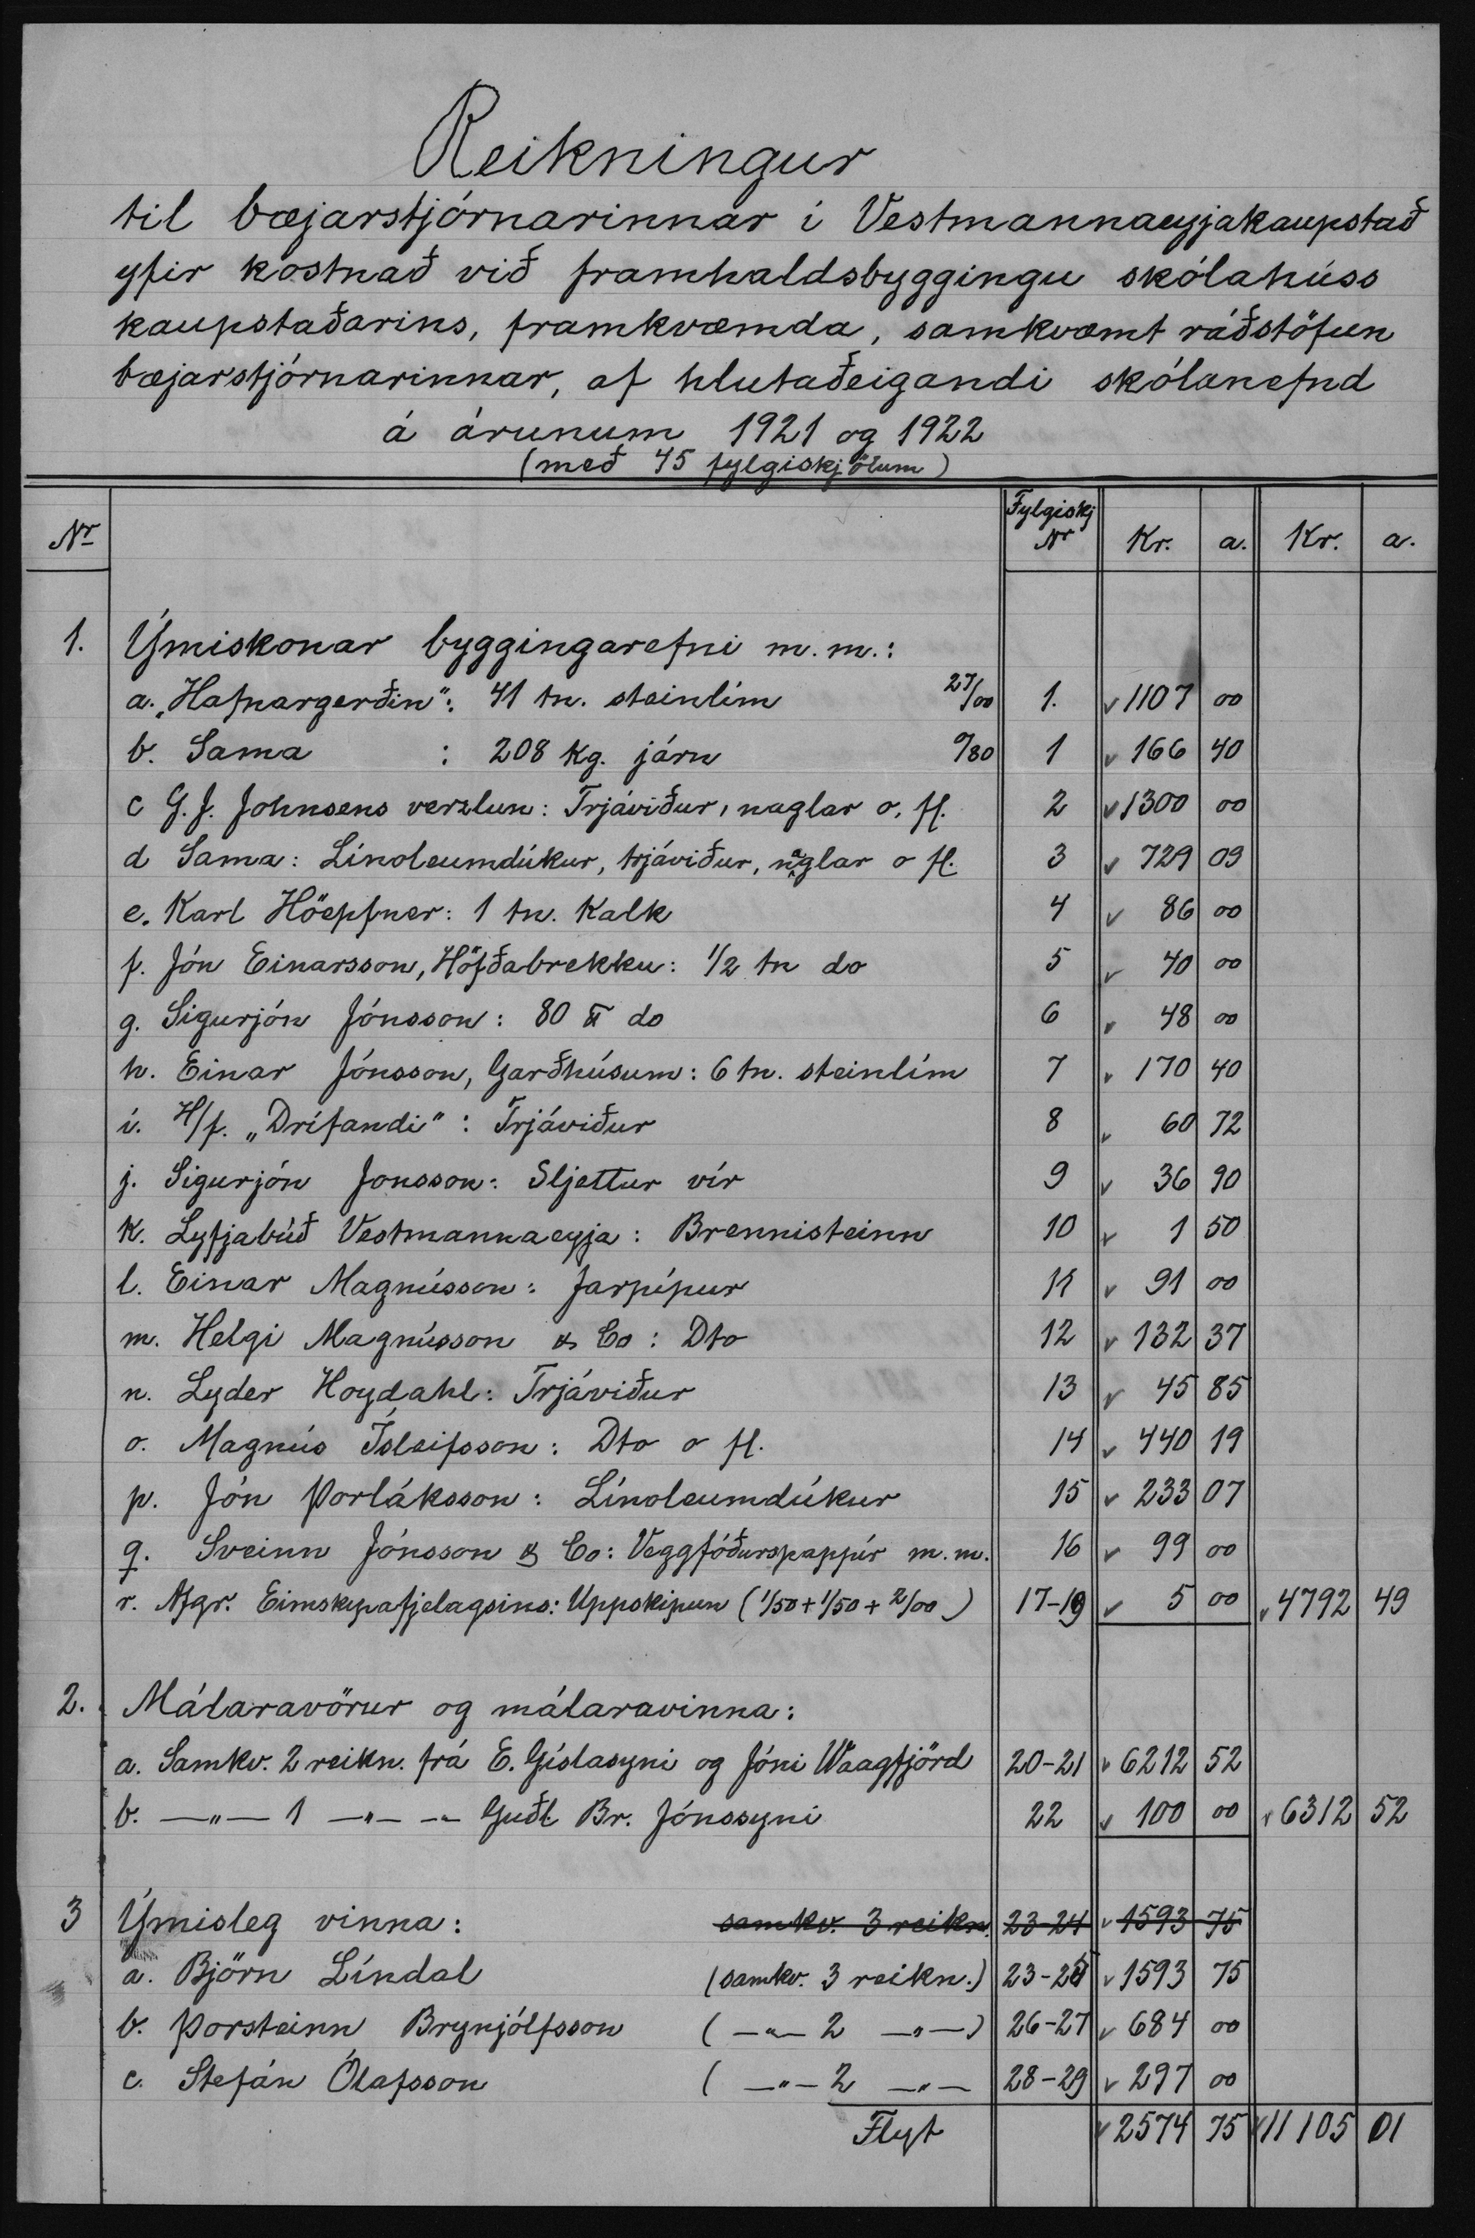 Reikningur
til bæjarstjórnarinnar í Vestmannaeyjakaupstað
yfir kostnað við framhaldsbyggingu skólahúss
kaupstaðarins, framkvæmda, samkvæmt ráðstöfun
bæjarstjórnarinnar, af hlutaðeigandi skólanefnd
á árunum 1921 og 1922
(með 45 fylgiskjölum)
Nr Fylgiskj Nr Kr. a. Kr. a.
1. Ýmiskonar byggingarefni m.m.:
a. „Hafnargerðin“: 41 tn. steinlím 27/00 1. 1107 00
b. Sama : 208 kg. járn 0/80 1 166 40
c G.J. Johnsens verzlun: Trjáviður, naglar o. fl. 2 1300 00
d Sama: Línoleumdúkur, trjáviður, naglar o fl. 3 729 09
e. Karl Höepfner: 1 tn. Kalk 4 86 00
f. Jón Einarsson, Höfðabrekku: 1/2 tn do 5 40 00
g. Sigurjón Jónsson: 80 ℔ do 6 48 00
h. Einar Jónsson, Garðhúsum: 6 tn. steinlím 7 170 40
i. H/f. „Drífandi“: Trjáviður 8 60 72
j. Sigurjón Jonsson: Sljettur vír 9 36 90
k. Lyfjabúð Vestmannaeyja: Brennisteinn 10 1 50
l. Einar Magnússon: Jarpípur 11 91 00
m. Helgi Magnússon & Co: Dto 12 132 37
n. Lyder Hoydahl: Trjáviður 13 45 85
o. Magnús Ísleifsson: Dto o fl. 14 440 19
p. Jón Þorláksson: Línoleumdúkur 15 233 07
q. Sveinn Jónsson & Co: Veggfóðurspappír m.m. 16 99 00
r. Afgr. Eimskipafjelagsins: Uppskipun (1/50 + 1/50 + 2/00) 17-19 5 00 4792 49
2. Málaravörur og málaravinna:
a. Samkv. 2 reikn. frá E. Gíslasyni og Jóni Waagfjörd 20-21 6212 52
b. —〃— 1 —〃— —〃— Guðl. Br. Jónssyni 22 100 00 6312 52
3 Ýmisleg vinna: samkv. 3 reikn. 23-24 1593 75
a. Björn Líndal (samkv. 3 reikn.) 23-25 1593 75
b. Þorsteinn Brynjólfsson ( —〃— 2 —〃— ) 26-27 684 00
c. Stefán Ólafsson ( —〃— 2 —〃— 28-29 297 00
Flyt 2574 75 11105 01